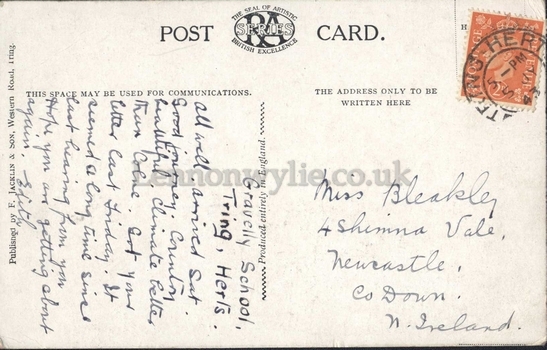 POST
CARD.
THE SEAL OF ARTISTIC
RA
SERIES
BRITISH EXCELLENCE
THIS SPACE MAY BE USED FOR COMMUNICATIONS.
THE ADDRESS ONLY TO BE
WRITTEN HERE
Gravelly School,
Tring, Herts.
all well arrived Sat.
Good journey, Country
beautiful, climate better
than Colne. Got your
letter last Friday. It
seemed a long time since
last hearing from you
Hope you are getting about
again. Edith
Published by F. JACKLIN & SON, Western Road, Tring.
Produced entirely in England.
Miss Bleakley
4 Shimna Vale,
Newcastle,
Co Down.
N. Ireland.
TRING HERTS
PM
POSTAGE
lennonwylie.co.uk